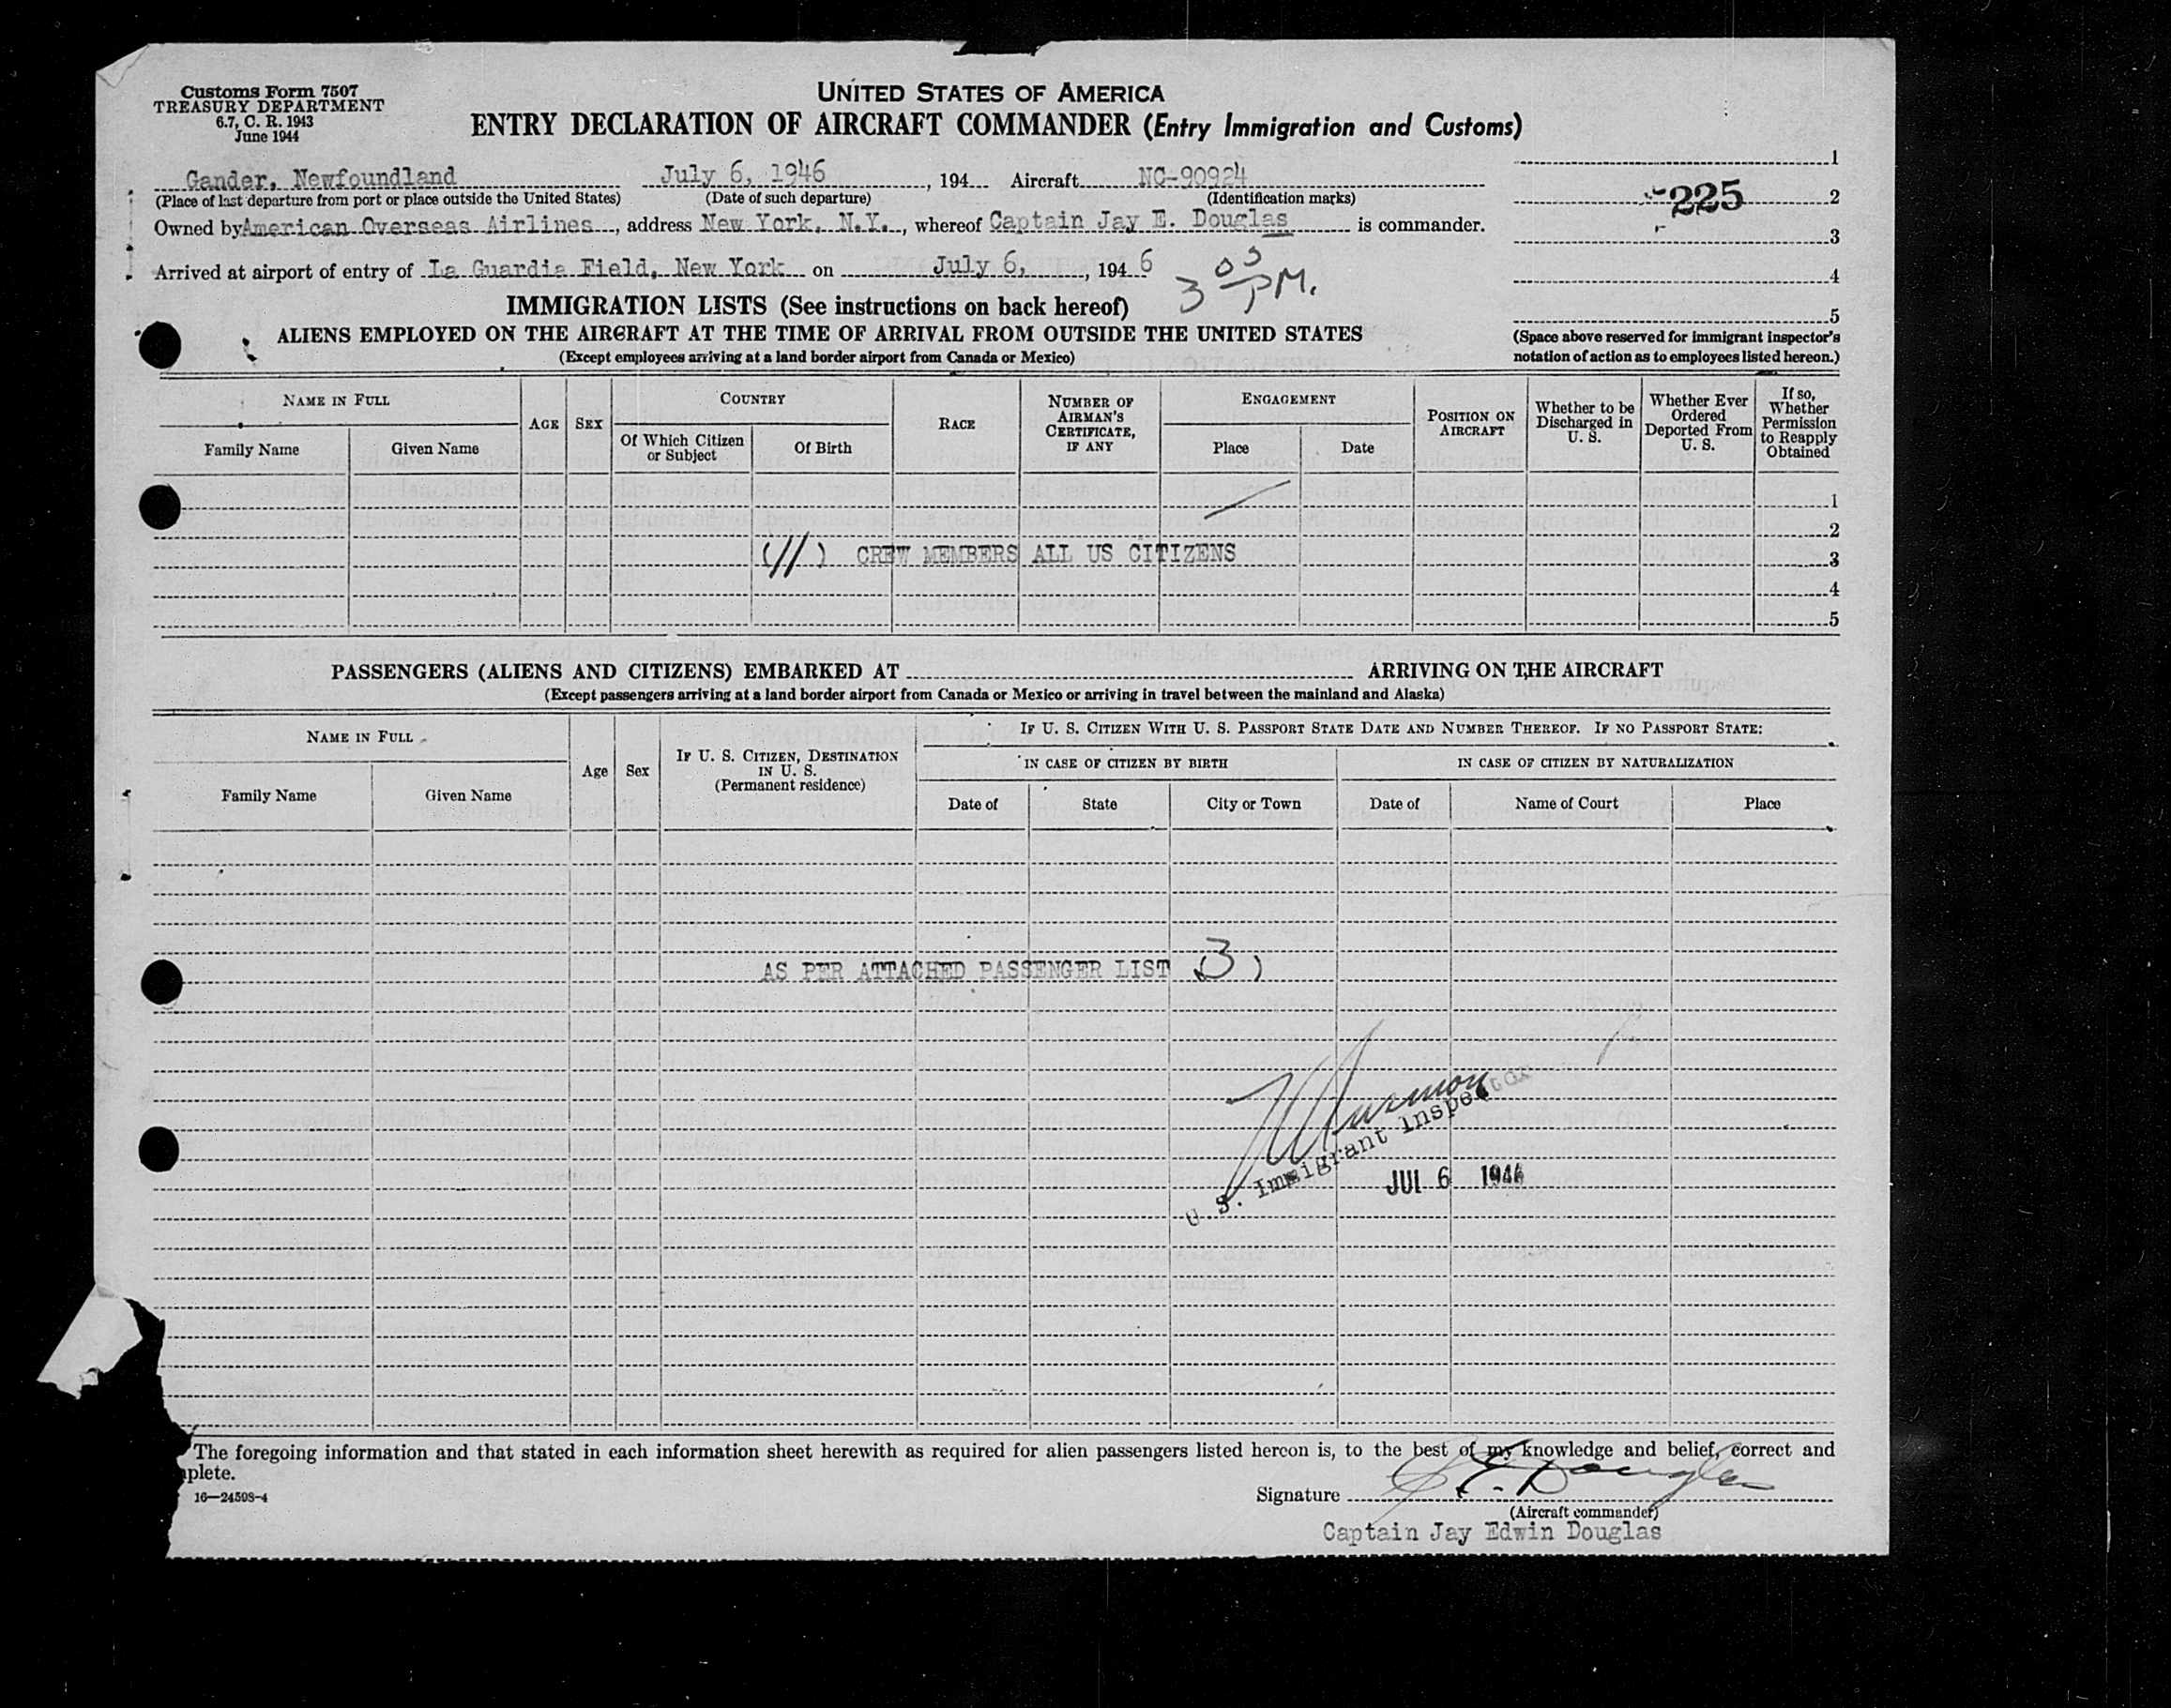 Customs Form 7507
TREASURY DEPARTMENT
6.7, C. R. 1943
June 1944
UNITED STATES OF AMERICA
ENTRY DECLARATION OF AIRCRAFT COMMANDER (Entry Immigration and Customs)
Gander, Newfoundland July 6, 1946, 194 Aircraft NC-90924
(Place of last departure from port or place outside the United States) (Date of such departure) (Identification marks)
Owned by American Overseas Airlines, address New York, N.Y., whereof Captain Jay E. Douglas is commander.
Arrived at airport of entry of La Guardia Field, New York on July 6, 1946
3 05 PM.
1
225 2
3
4
5
(Space above reserved for immigrant inspector's
notation of action as to employees listed hereon.)
IMMIGRATION LISTS (See instructions on back hereof)
ALIENS EMPLOYED ON THE AIRCRAFT AT THE TIME OF ARRIVAL FROM OUTSIDE THE UNITED STATES
(Except employees arriving at a land border airport from Canada or Mexico)
NAME IN FULL
Family Name
Given Name
AGE
SEX
COUNTRY
Of Which Citizen
or Subject
Of Birth
RACE
NUMBER OF
AIRMAN'S
CERTIFICATE,
IF ANY
ENGAGEMENT
Place
Date
POSITION ON
AIRCRAFT
Whether to be
Discharged in
U. S.
Whether Ever
Ordered
Deported From
U. S.
If so,
Whether
Permission
to Reapply
Obtained
1
2
(11) CREW MEMBERS ALL US CITIZENS 3
4
5
PASSENGERS (ALIENS AND CITIZENS) EMBARKED AT ARRIVING ON THE AIRCRAFT
(Except passengers arriving at a land border airport from Canada or Mexico or arriving in travel between the mainland and Alaska)
NAME IN FULL
Family Name
Given Name
Age
Sex
IF U. S. CITIZEN, DESTINATION
IN U. S.
(Permanent residence)
IF U. S. CITIZEN WITH U. S. PASSPORT STATE DATE AND NUMBER THEREOF. IF NO PASSPORT STATE:
IN CASE OF CITIZEN BY BIRTH
Date of
State
City or Town
IN CASE OF CITIZEN BY NATURALIZATION
Date of
Name of Court
Place
AS PER ATTACHED PASSENGER LIST (3)
U. S. Immigrant Inspector
JUL 6 1946
The foregoing information and that stated in each information sheet herewith as required for alien passengers listed hereon is, to the best of my knowledge and belief, correct and
plete.
16—24598-4
Signature J. E. Douglas
(Aircraft commander)
Captain Jay Edwin Douglas